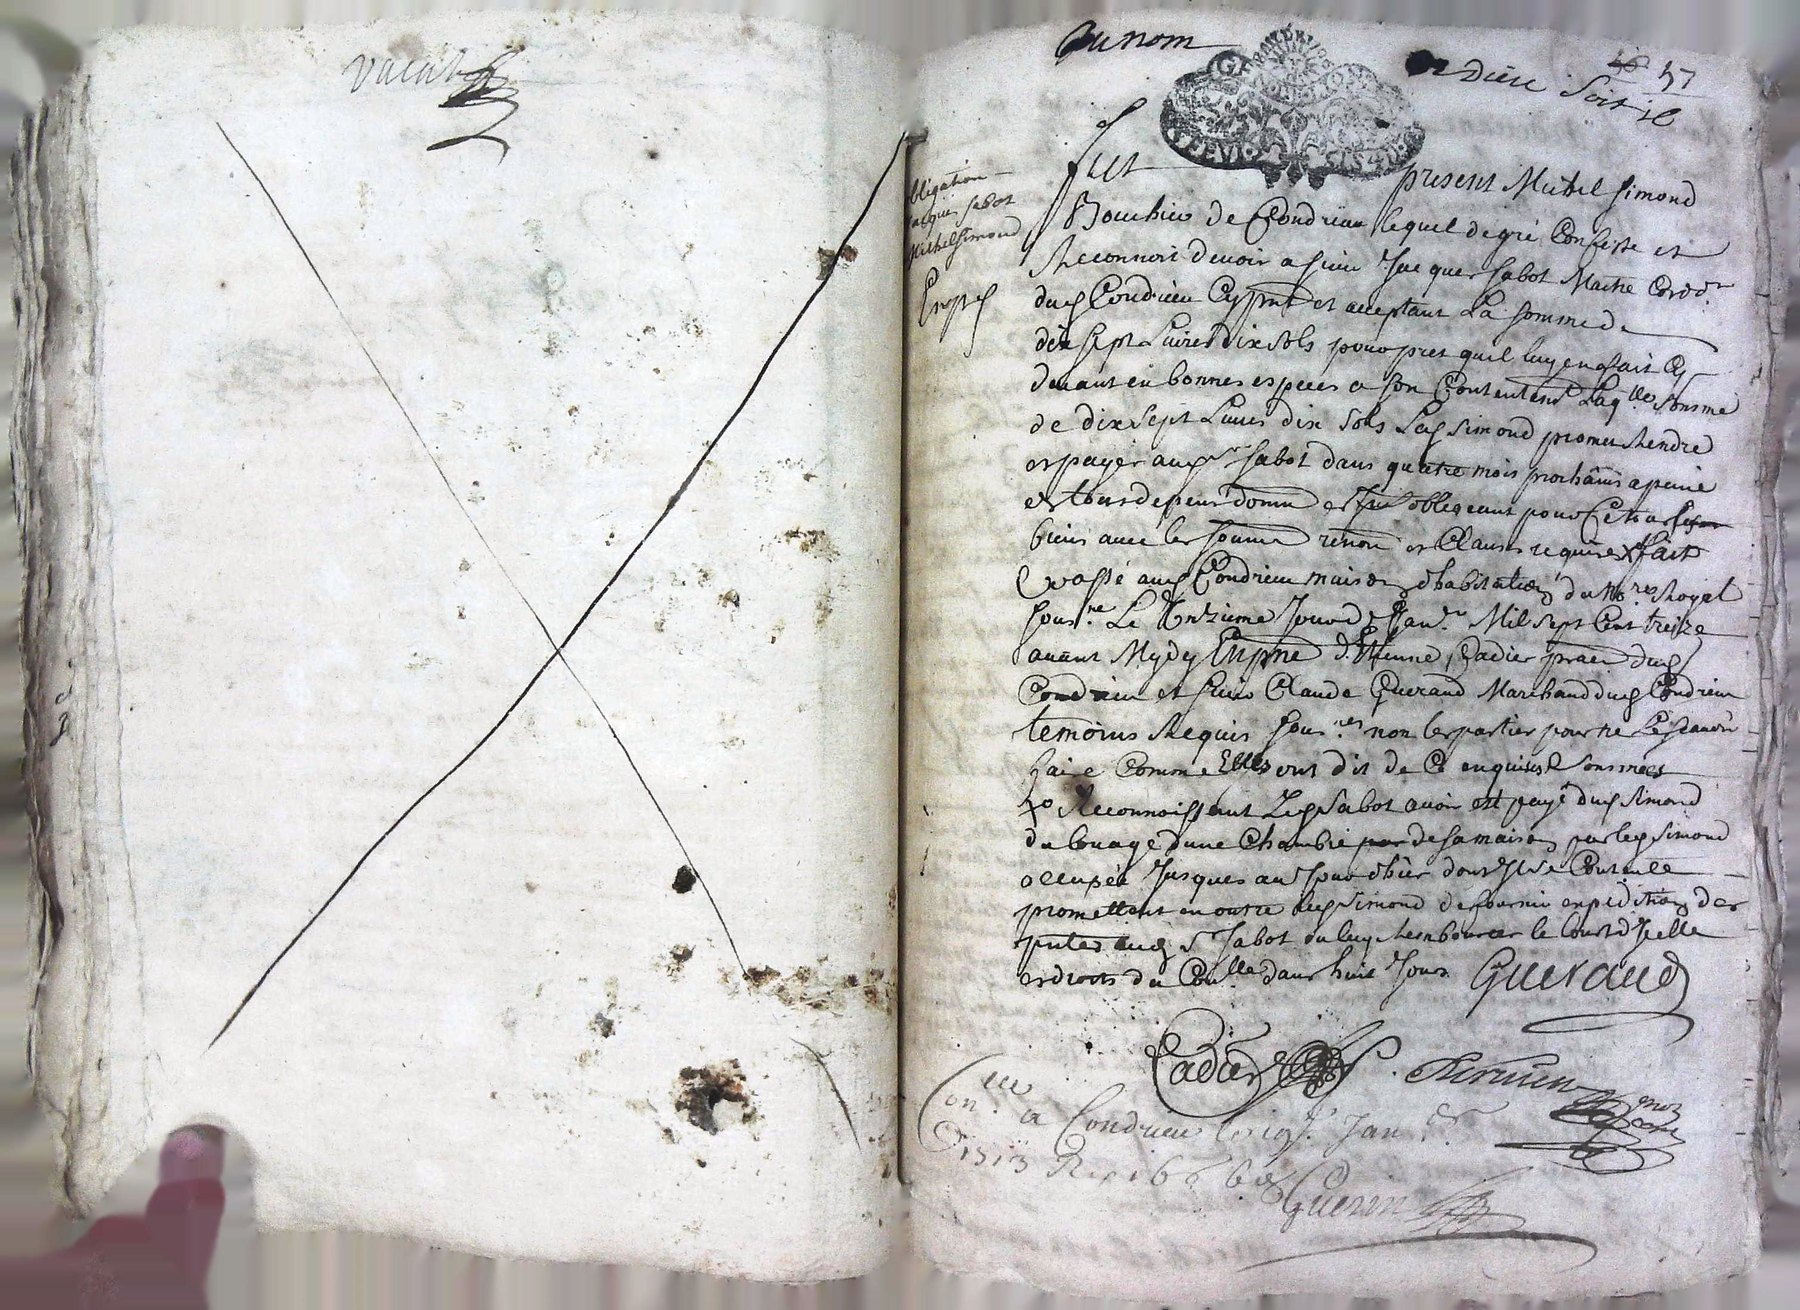 vacat
Au nom
de dieu soit il
57
obligation
Jacques Sabot
Michel Simond
Exp.
fut present Michel Simond
Bouchier de Condrieu lequel de gré Confesse et
Reconnoit devoir a sieur Jacques Sabot Maitre Cordor
dud Condrieu Cy pnt et acceptant La somme de
dix sept Livres dix sols pour pret quil luy en a fait Cy
devant en bonnes especes a son Contentemt Laqlle somme
de dix sept Livres dix sols Led Simond promet Rendre
et payer aud sr Sabot dans quatre mois prochains a peine
et tous depens dom et obligeant pour Ce tous ses
biens avec les soum renon et Clauses requises X fait
et passé aud Condrieu maison d'habitation du Nore Royal
souse Le Onzieme Jour de Janer Mil sept Cent treize
avant Mydy En pnce d'Etienne Cadier praen dud
Condrieu et sieur Claude Gueraud Marchand dud Condrieu
temoins Requis sousnes non les parties pour ne Le scavoir
faire Comme Elles ont dit de Ce enquises & sommées
X Reconnoissant Led Sabot avoir esté payé dud Simond
du louage dune Chambre de sa maison par led Simond
occupée Jusques au Jour d'hier dont Il se Contente
promettant en outre led Simond de fournir expedition des
pntes aud sr Sabot ou luy Rembourcer le Coust d'Icelle
et droits du Conlle dans huit Jours Gueraud
Cadier
Conlle a Condrieu le 19e Janer
1713
Guerin